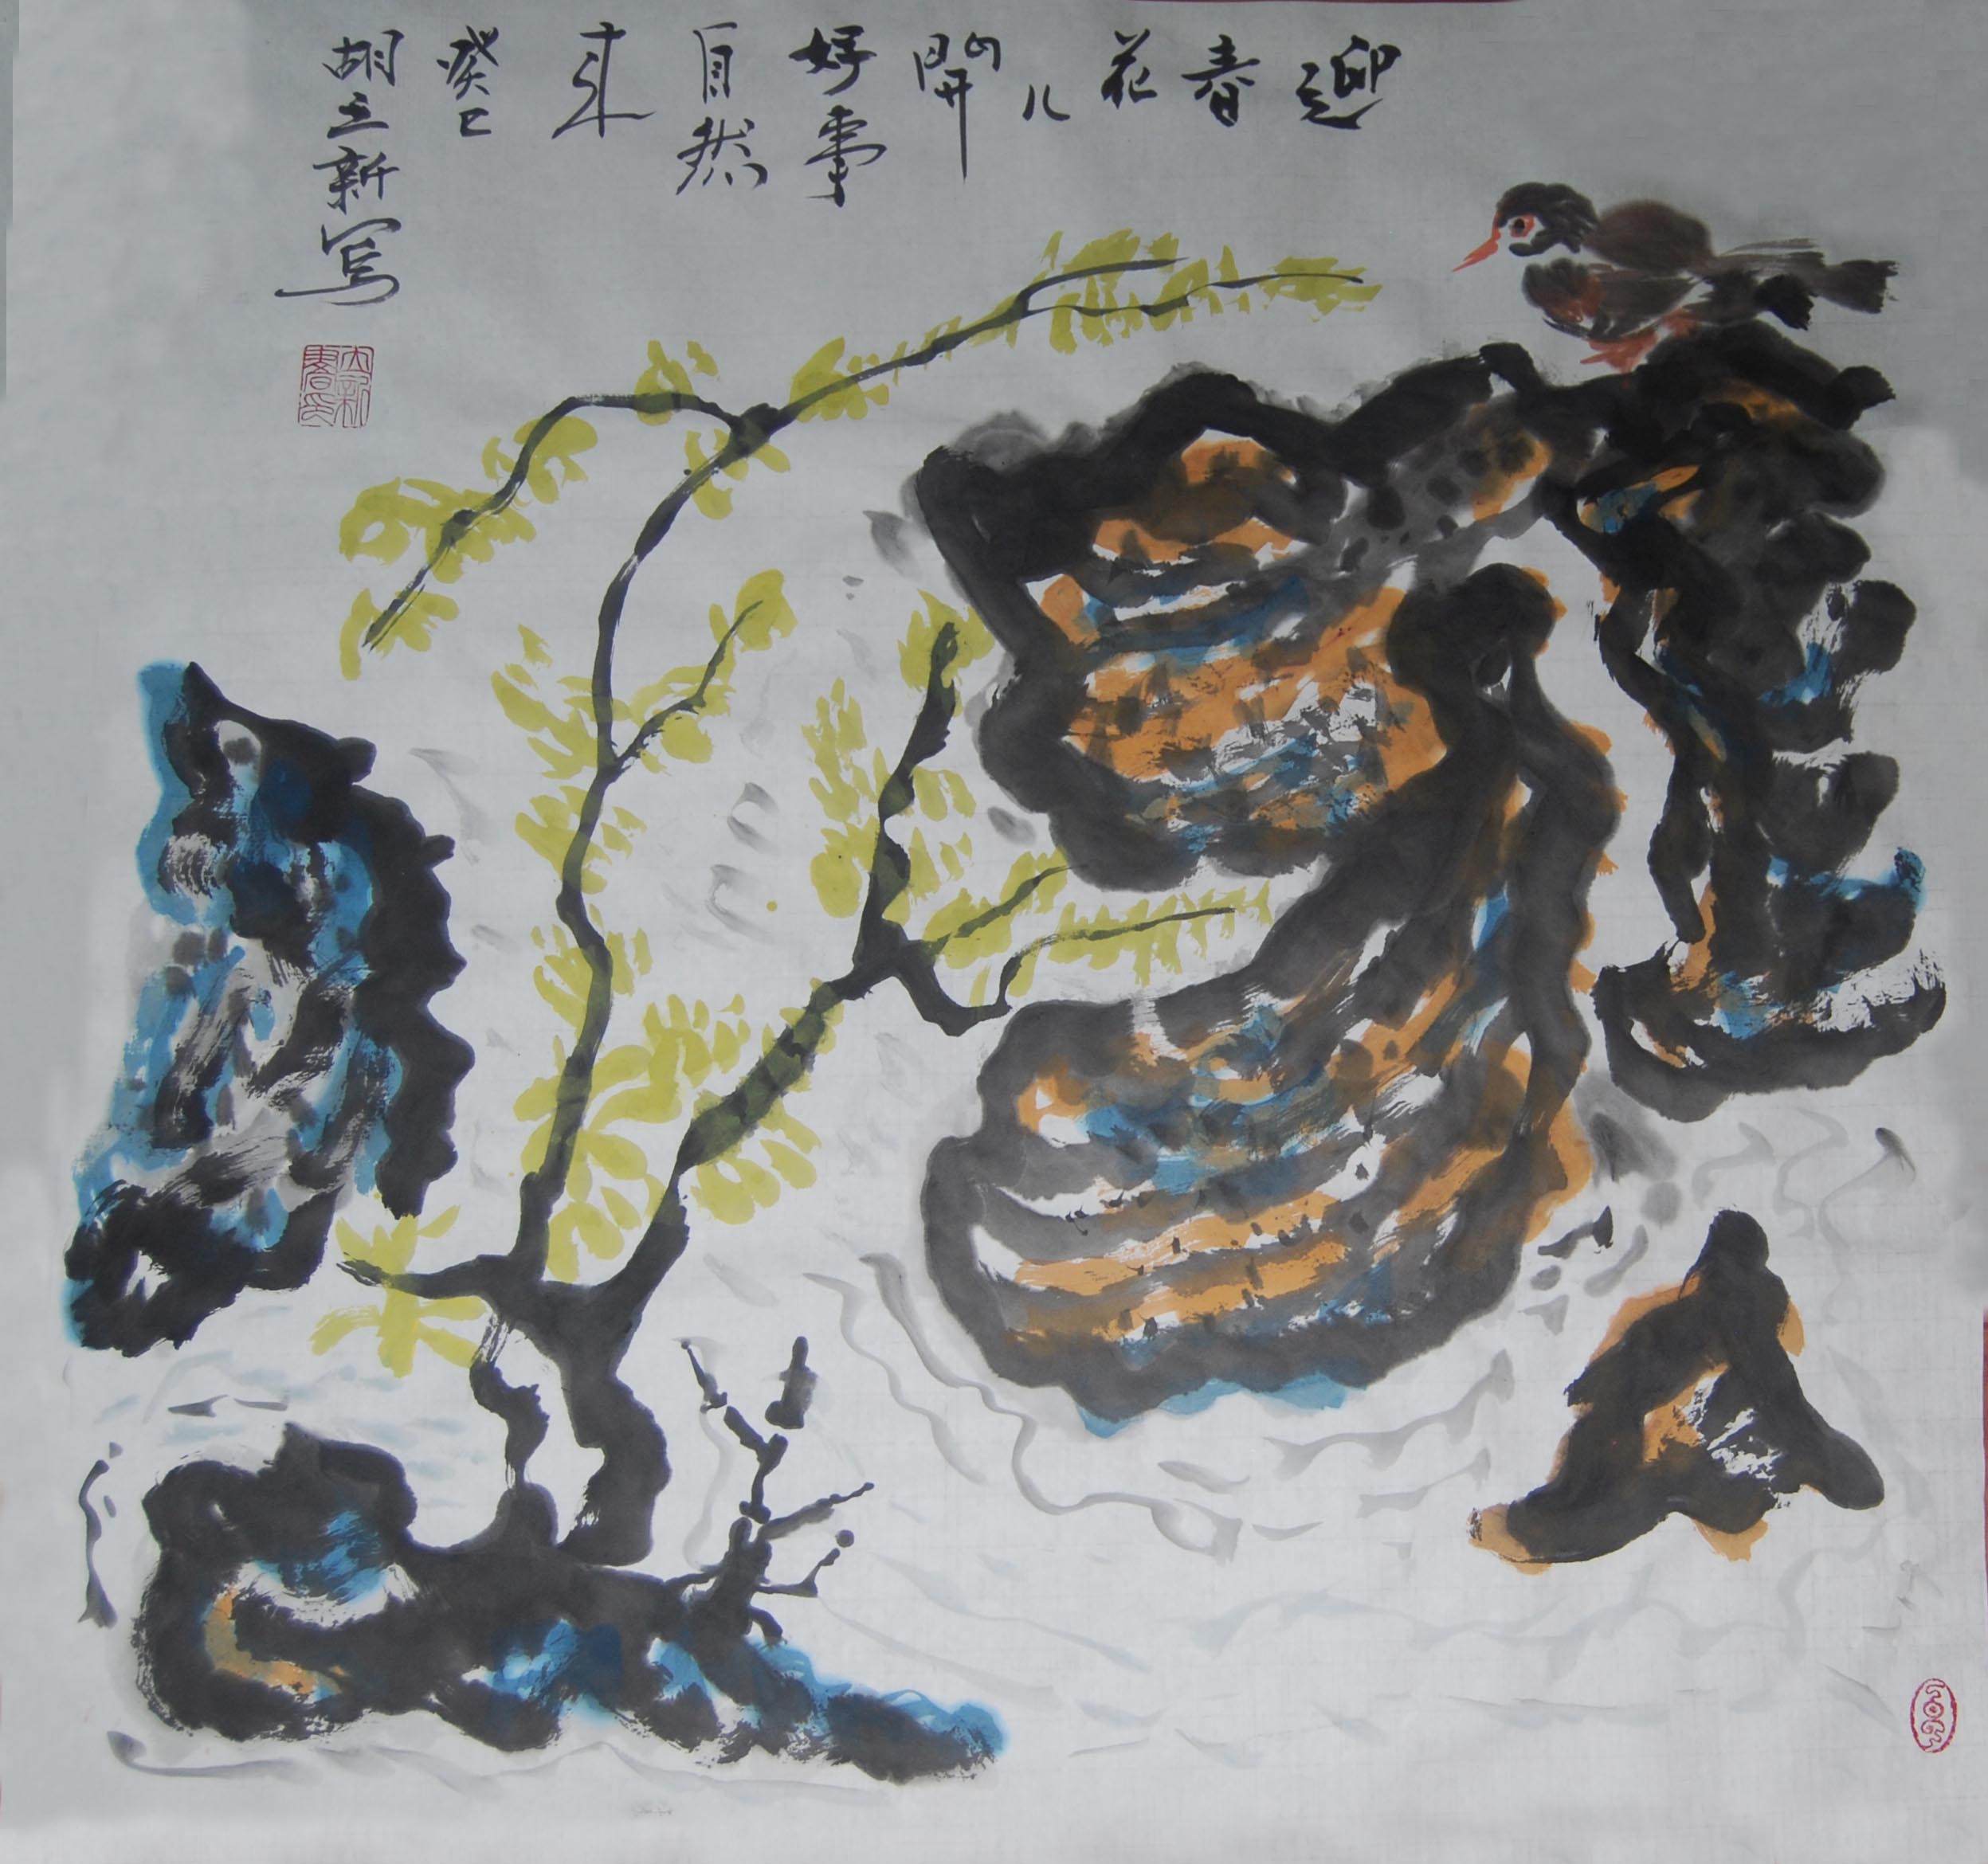 迎
春
花
儿
開
好事
自然
来
癸巳
胡立新写